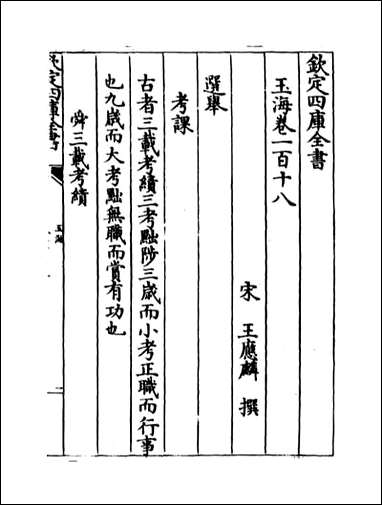 欽定四庫全書
玉海卷一百十八
宋 王應麟 撰
選舉
考課
古者三載考績三考黜陟三歲而小考正職而行事
也九歲而大考黜無職而賞有功也
舜三載考績
欽定四庫全書
玉海